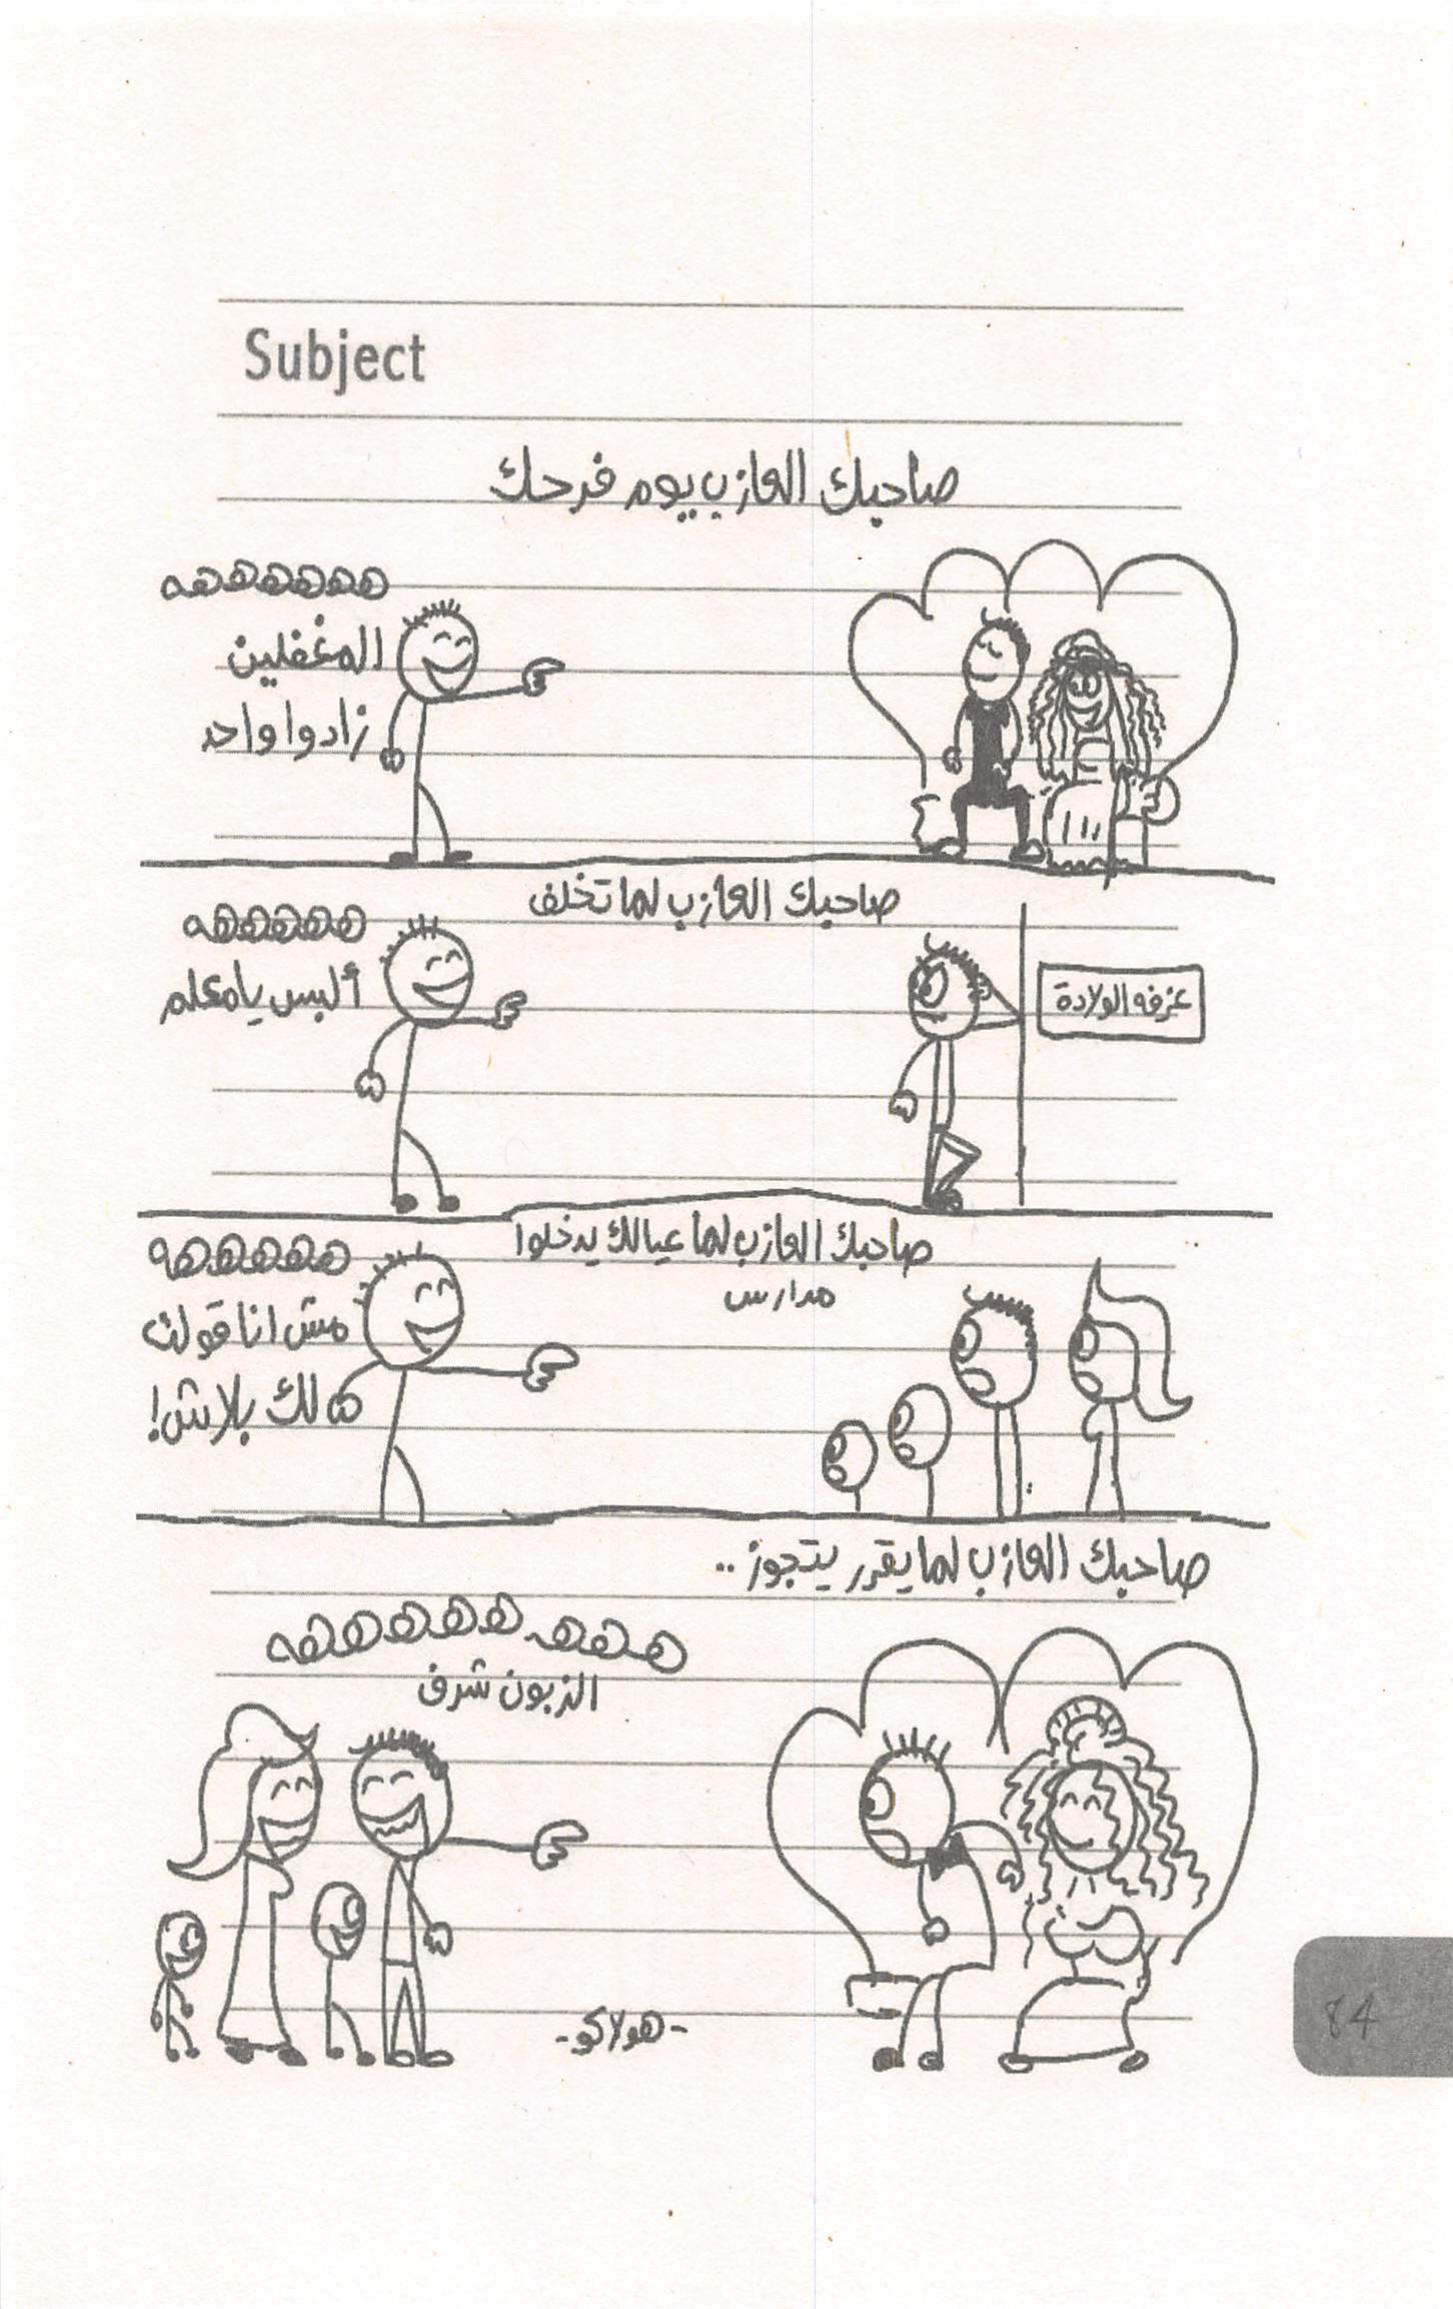 Subject
صاحبك العازب يوم فرحك
هههههههه
المغفلين
زادوا واحد
صاحبك العازب لما تخلف
ههههههه
ألبس يا معلم
غرفه الولادة
صاحبك العازب لما عيالك يدخلوا
مدارس
ههههههه
مش انا قولت
لك بلاش!
صاحبك العازب لما يقرر يتجوز..
هههههههههه
الزبون شرف
-هولاكو-
84